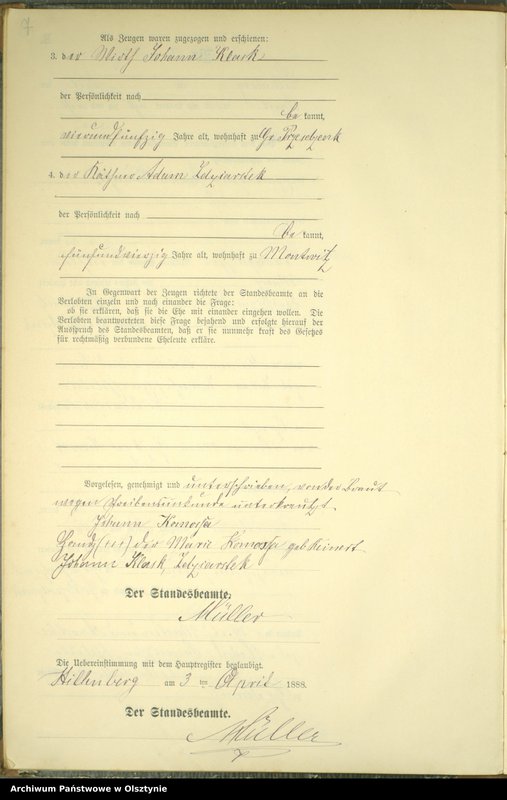 Als Zeugen waren zugezogen und erschienen:
3. der Wirth Johann Klask
der Persönlichkeit nach
be kannt,
vierundfünfzig Jahre alt, wohnhaft zu Gr.
4. der Käthner Adam
der Persönlichkeit nach
be kannt,
fünfundvierzig Jahre alt, wohnhaft zu Montwitz
In Gegenwart der Zeugen richtete der Standesbeamte an die
Verlobten einzeln und nach einander die Frage:
ob sie erklären, daß sie die Ehe mit einander eingehen wollen. Die
Verlobten beantworteten diese Frage bejahend und erfolgte hierauf der
Ausspruch des Standesbeamten, daß er sie nunmehr kraft des Gesetzes
für rechtmäßig verbundene Eheleute erkläre.
Vorgelesen, genehmigt und unterschrieben, von der Braut
wegen Schreibensunkunde unterkreuzt.
Johann Komossa
Handz(+++) der Marie Komossa geb.
Johann Klask
Der Standesbeamte.
Müller
Die Uebereinstimmung mit dem Hauptregister beglaubigt.
am 3 ten April 1888.
Der Standesbeamte.
Müller
Archiwum Państwowe w Olsztynie